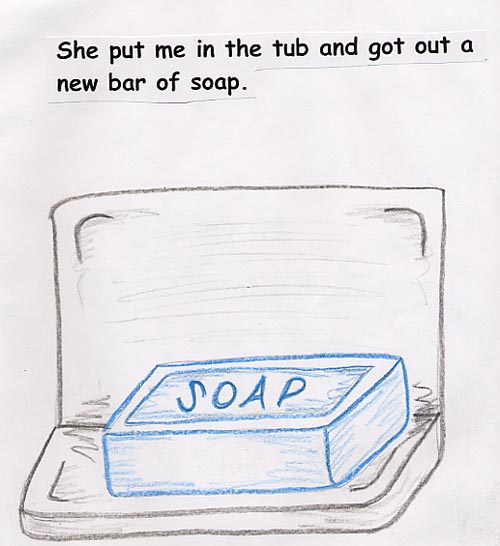 She put me in the tub and got out a
new bar of soap.
SOAP